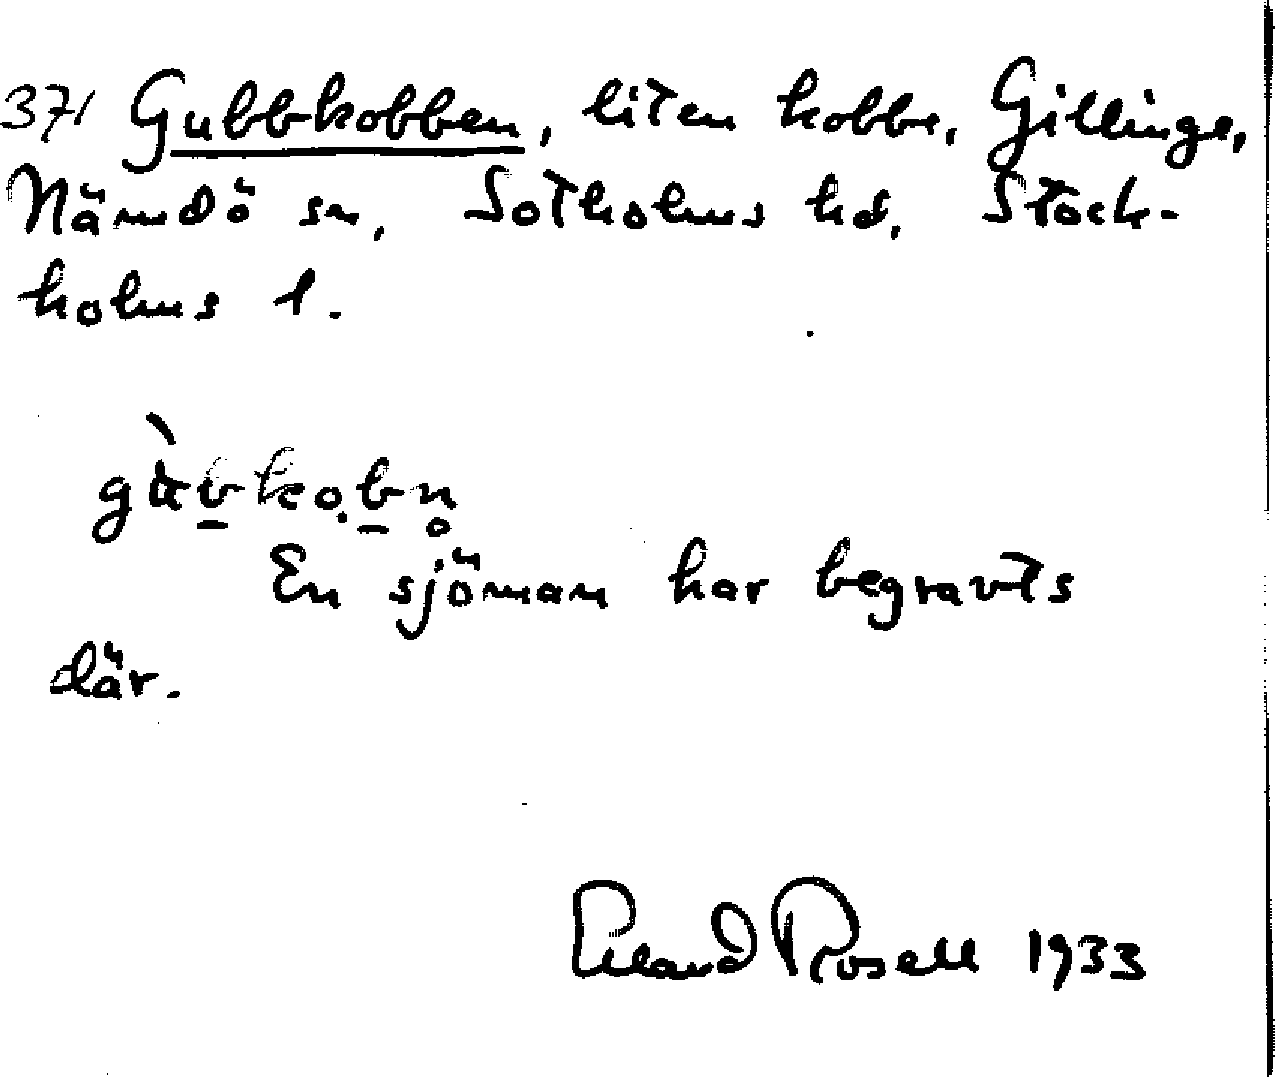 371 Gubbkobben, liten kobbe, Gillinge,
Nämdö sn, Sotholms hd, Stock-
holms l.
gu̇̀b̲ko̤b̲n̥
En sjöman har begravts
där.
Erland Rosell 1933